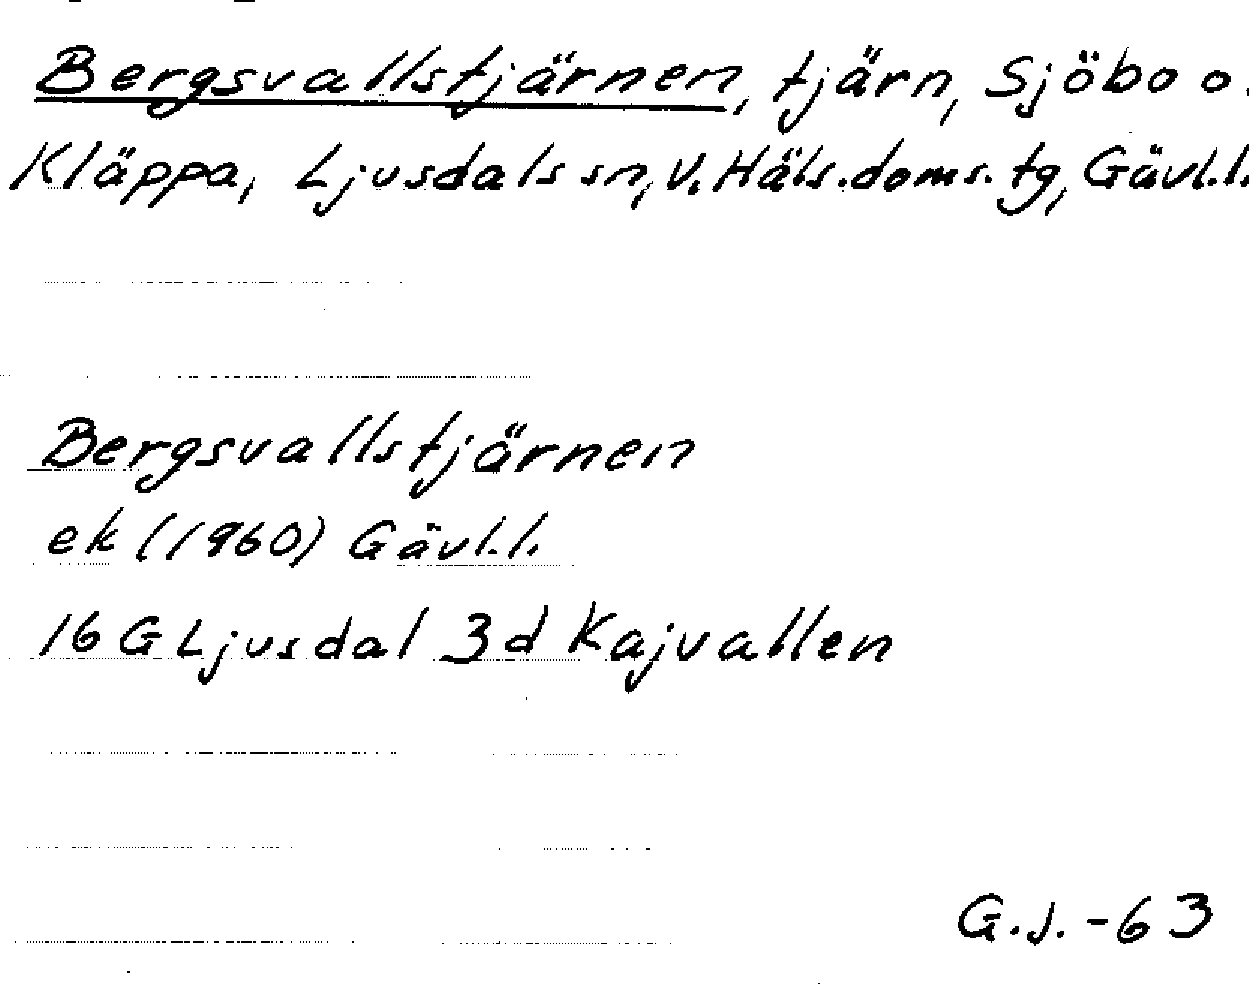 Bergsvallstjärnen, tjärn, Sjöbo o.
Kläppa, Ljusdals sn, V. Häls. doms. tg, Gävl.l.
Bergsvallstjärnen
ek (1960) Gävl.l.
16 G Ljusdal 3d Kajvallen
G.J. -63